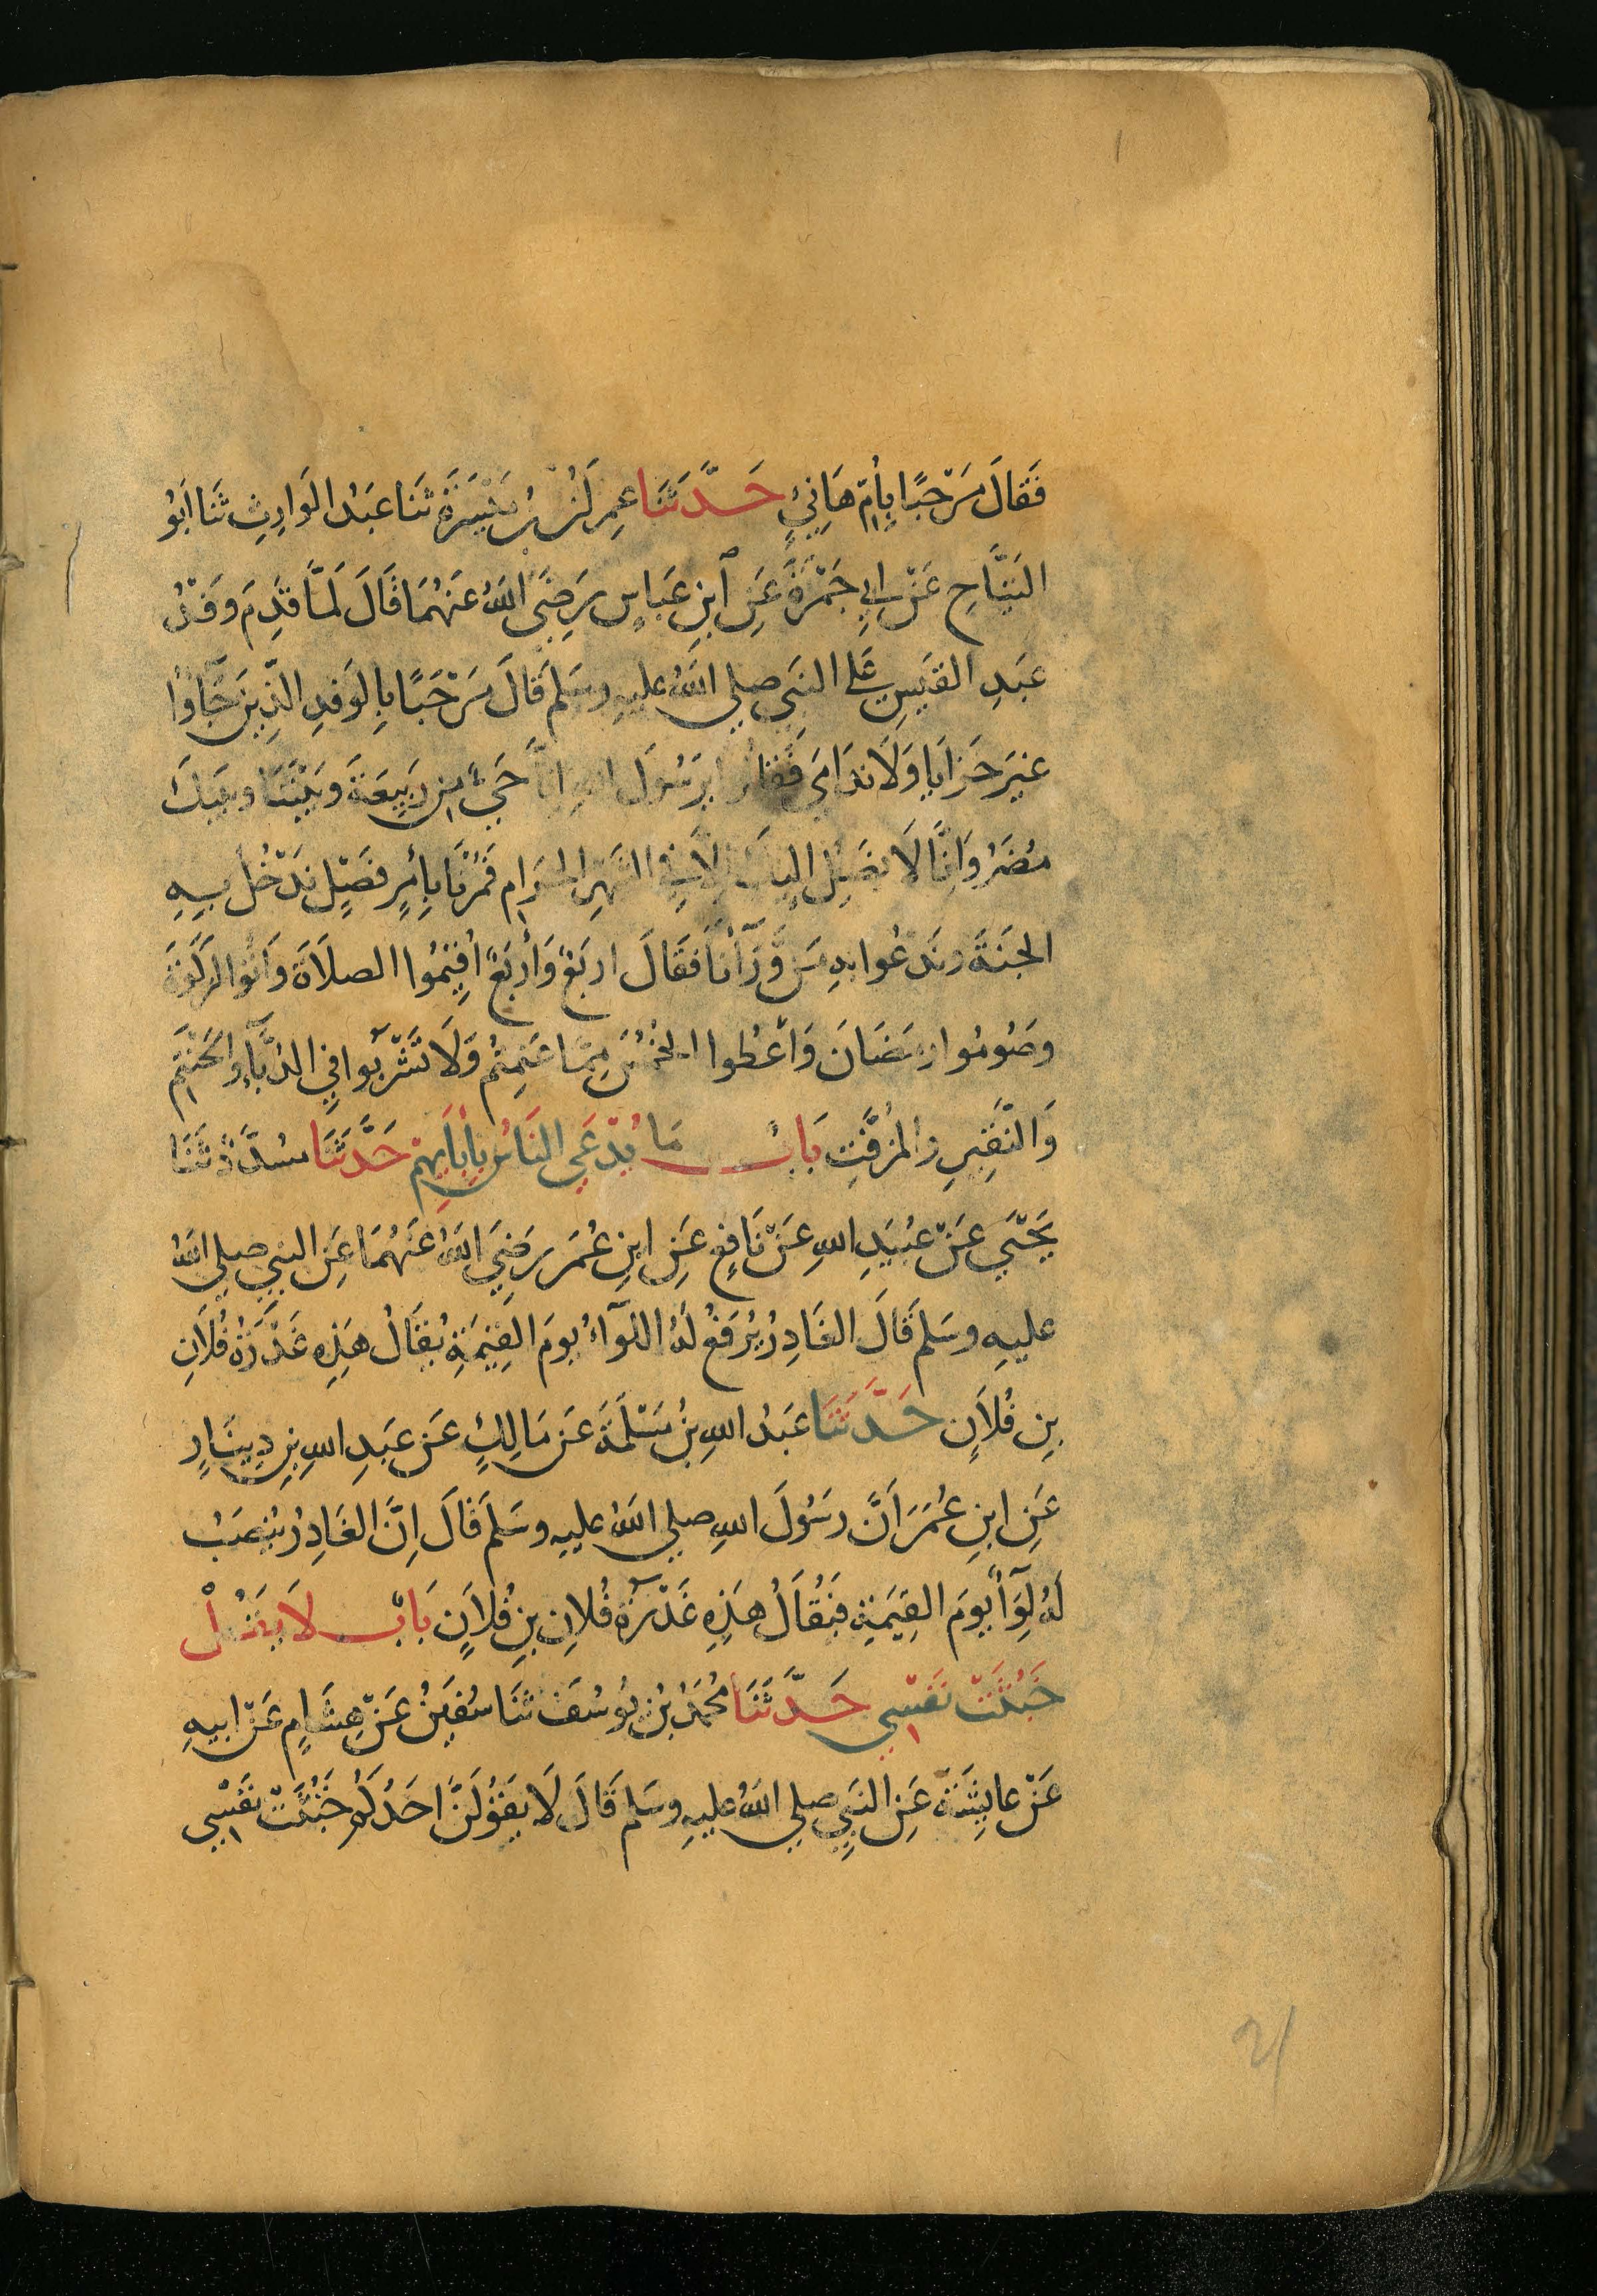 فَقَالَ مَرْحَبًا بِأُمِّ هَانِئٍ حَدَّثَنَا عِمرَنُ بنُ مَيْسَرَةَ ثَنَا عَبْدُ الوَارِثِ ثَنَا اَبُو
التَيَّاحِ عَنْ اَبِي جَمْرَةَ عَنِ ابْنِ عَبَّاسٍ رَضِيَ اللّٰهُ عَنْهُمَا قَالَ لَمَّا قَدِمَ وَفْدُ
عَبْدِ القَيْسِ عَلَى النَّبِي صلى اللّٰهُ عليهِ وسَلم قَالَ مَرْحَبًا بِالوَفدِ الذِينَ جَاؤُا
غيرَ خَزَايا وَلَا نَدَامَى فَقَالُوا يرَسُولَ اللهِ اِنَّا حَيٌّ مِن رَبِيعَةَ وَبَيْنَنَا وبَينَكَ
مُضَرُ وَاِنَّا لَا نَصِلُ اِلَيكَ اِلَّا فِي الشَّهرِ الحَرَامِ فَمُرْنَا بِأَمْرٍ فَصْلٍ نَدْخُلُ بِهِ
الجَنَّةَ وَنَدْعُوا بهِ مَن وَّرَآنَا فَقَالَ اربَعٌ وَأَربَعٌ اَقِيْمُوا الصلَاةَ وَآتُوا الزكوةَ
وصُومُوا رمَضَانَ وَأَعْطُوا الخُمُسَ مِمَّا غَنِمتُم وَلَا تَشْرَبُوا فِي الدُبَّاءِ وَالحَنْتَمِ
وَالنَّقِيرِ وَالمزَفَّتِ بَابُ مَا يُدْعَى النَاسُ بِاٰبَايِهِمْ حَدَّثَنَا مسَدَّدٌ ثَنَا
يَحْيَى عَنْ عُبَيدِ اللهِ عَنْ نَافِعٍ عَنِ ابنِ عُمَر رَضِيَ اللّٰهُ عَنْهُمَا عَنِ النبي صلى اللّٰهُ
عليهِ وسَلم قَالَ الغَادِرُ يُرْفَعُ لَهُ اللوَآءُ يومَ القِيٰمَةِ يُقَالُ هَذِهِ غَدْرَةُ فُلَانِ
بنِ فُلَانٍ حَدَّثَنَا عَبْدُ اللهِ بنُ مَسْلَمَةَ عَن مَالِكٍ عَن عَبدِ اللهِ بنِ دِينَارٍ
عَنِ ابنِ عُمَرَ اَنَّ رسُولَ اللهِ صلى اللّٰهُ عليهِ وسَلمَ قَالَ اِنَّ الغَادِرُ يُنصَبُ
لَهُ لِوَآءٌ يومَ القِيٰمَةِ فَيُقَالُ هَذِهِ غَدْرَةُ فُلانِ بنِ فُلَانٍ بَابُ لَا يَقُلْ
خَبُثَتْ نَفْسِي حَدَّثَنَا مُحَمَّدُ بنُ يُوسُفَ ثَنَا سُفيٰنُ عَنْ هِشَامٍ عَنْ ابِيهِ
عَنْ عايِشَةَ عَنِ النَّبِي صلى اللّٰهُ عليهِ وسَلم قَالَ لَا يَقُولَنَّ احَدُكُم خَبُثَتْ نَفْسِي